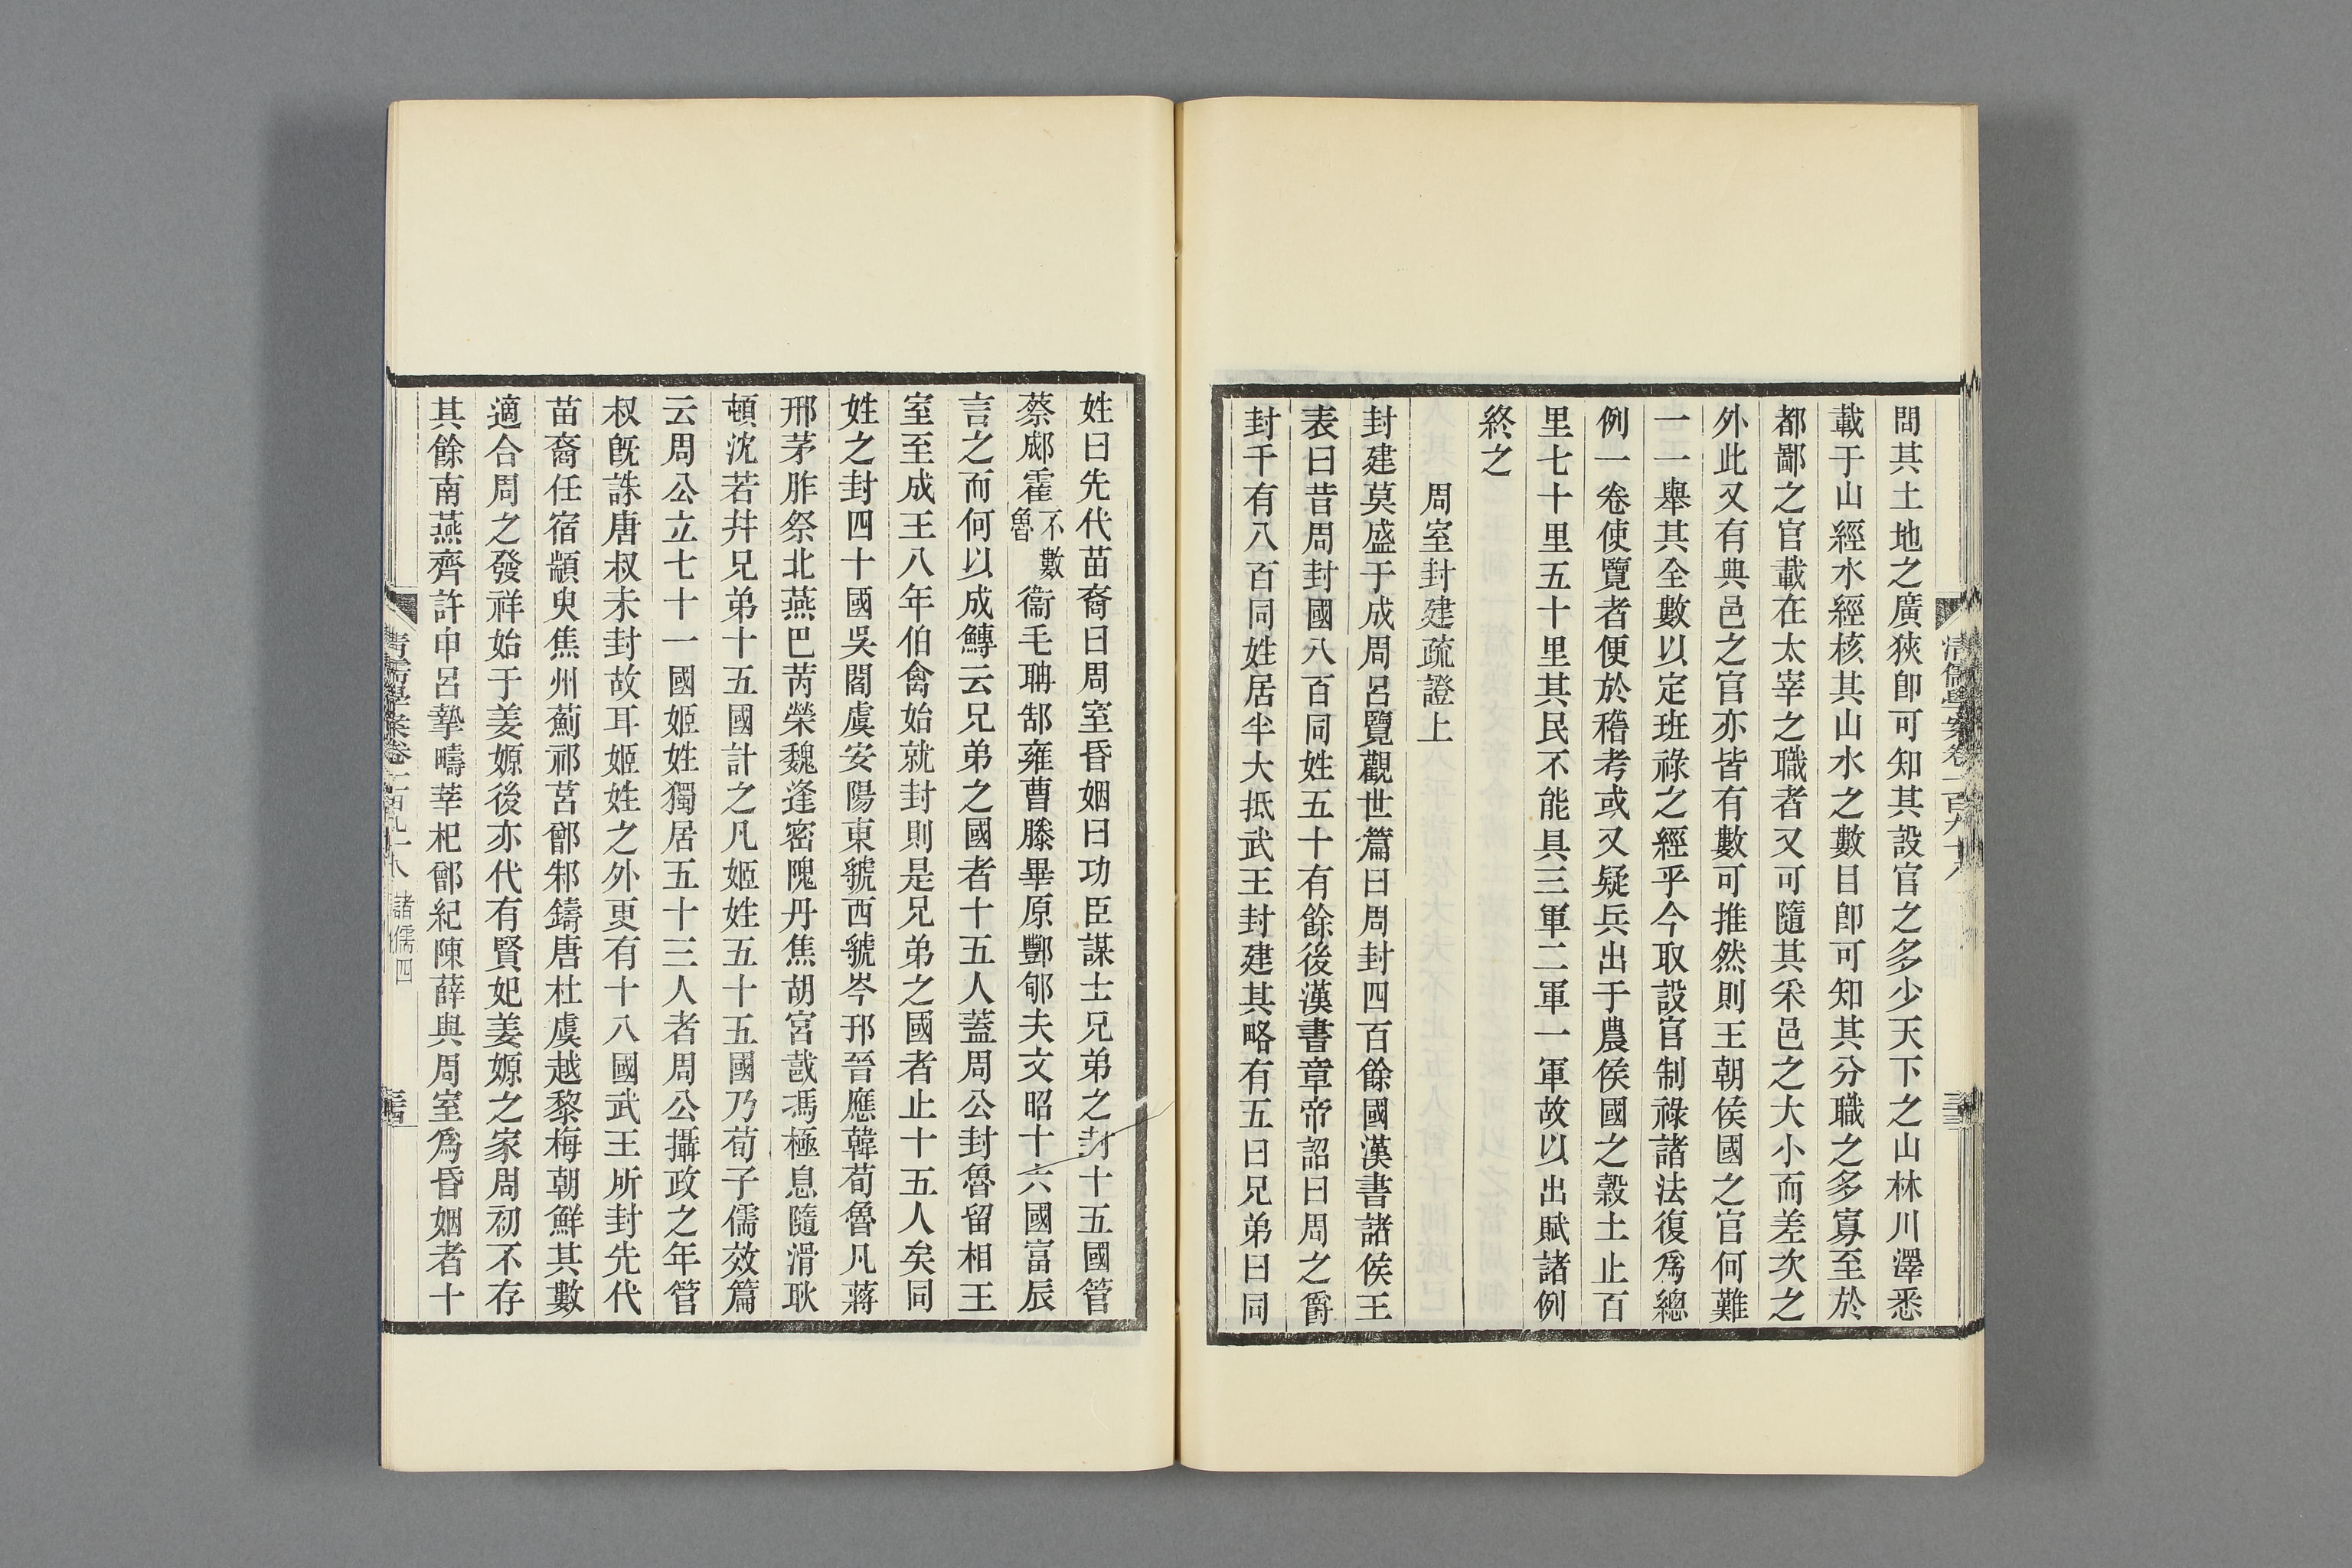 清儒學案卷一百九十八
問其土地之廣狹卽可知其設官之多少天下之山林川澤悉
載于山經水經核其山水之數目卽可知其分職之多寡至於
都鄙之官載在太宰之職者又可隨其采邑之大小而差次之
外此又有典邑之官亦皆有數可推然則王朝侯國之官何難
一一舉其全數以定班祿之經乎今取設官制祿諸法復爲總
例一卷使覽者便於稽考或又疑兵出于農侯國之穀土止百
里七十里五十里其民不能具三軍二軍一軍故以出賦諸例
終之
周室封建疏證上
封建莫盛于成周呂覽觀世篇曰周封四百餘國漢書諸侯王
表曰昔周封國八百同姓五十有餘後漢書章帝詔曰周之爵
封千有八百同姓居半大抵武王封建其略有五曰兄弟曰同
姓曰先代苗裔曰周室昏姻曰功臣謀士兄弟之封十五國管
蔡郕霍不數魯衞毛聃郜雍曹滕畢原酆郇夫文昭十六國富辰
言之而何以成鱄云兄弟之國者十五人蓋周公封魯留相王
室至成王八年伯禽始就封則是兄弟之國者止十五人矣同
姓之封四十國吳閻虞安陽東虢西虢岑邗晉應韓荀魯凡蔣
邢茅胙祭北燕巴芮榮魏逢密隗丹焦胡宮戠馮極息隨滑耿
頓沈若幷兄弟十五國計之凡姬姓五十五國乃荀子儒效篇
云周公立七十一國姬姓獨居五十三人者周公攝政之年管
叔旣誅唐叔未封故耳姬姓之外更有十八國武王所封先代
苗裔任宿顓臾焦州薊祁莒鄫邾鑄唐杜虞越黎梅朝鮮其數
適合周之發祥始于姜嫄後亦代有賢妃姜嫄之家周初不存
其餘南燕齊許申呂摯疇莘杞鄫紀陳薛與周室爲昏姻者十
清儒學案卷一百九十八 諸儒四